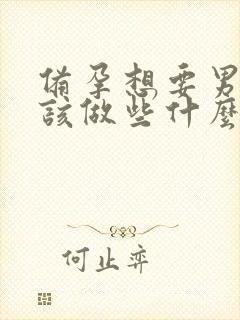 備孕想要男
該做些什麼
何止弈